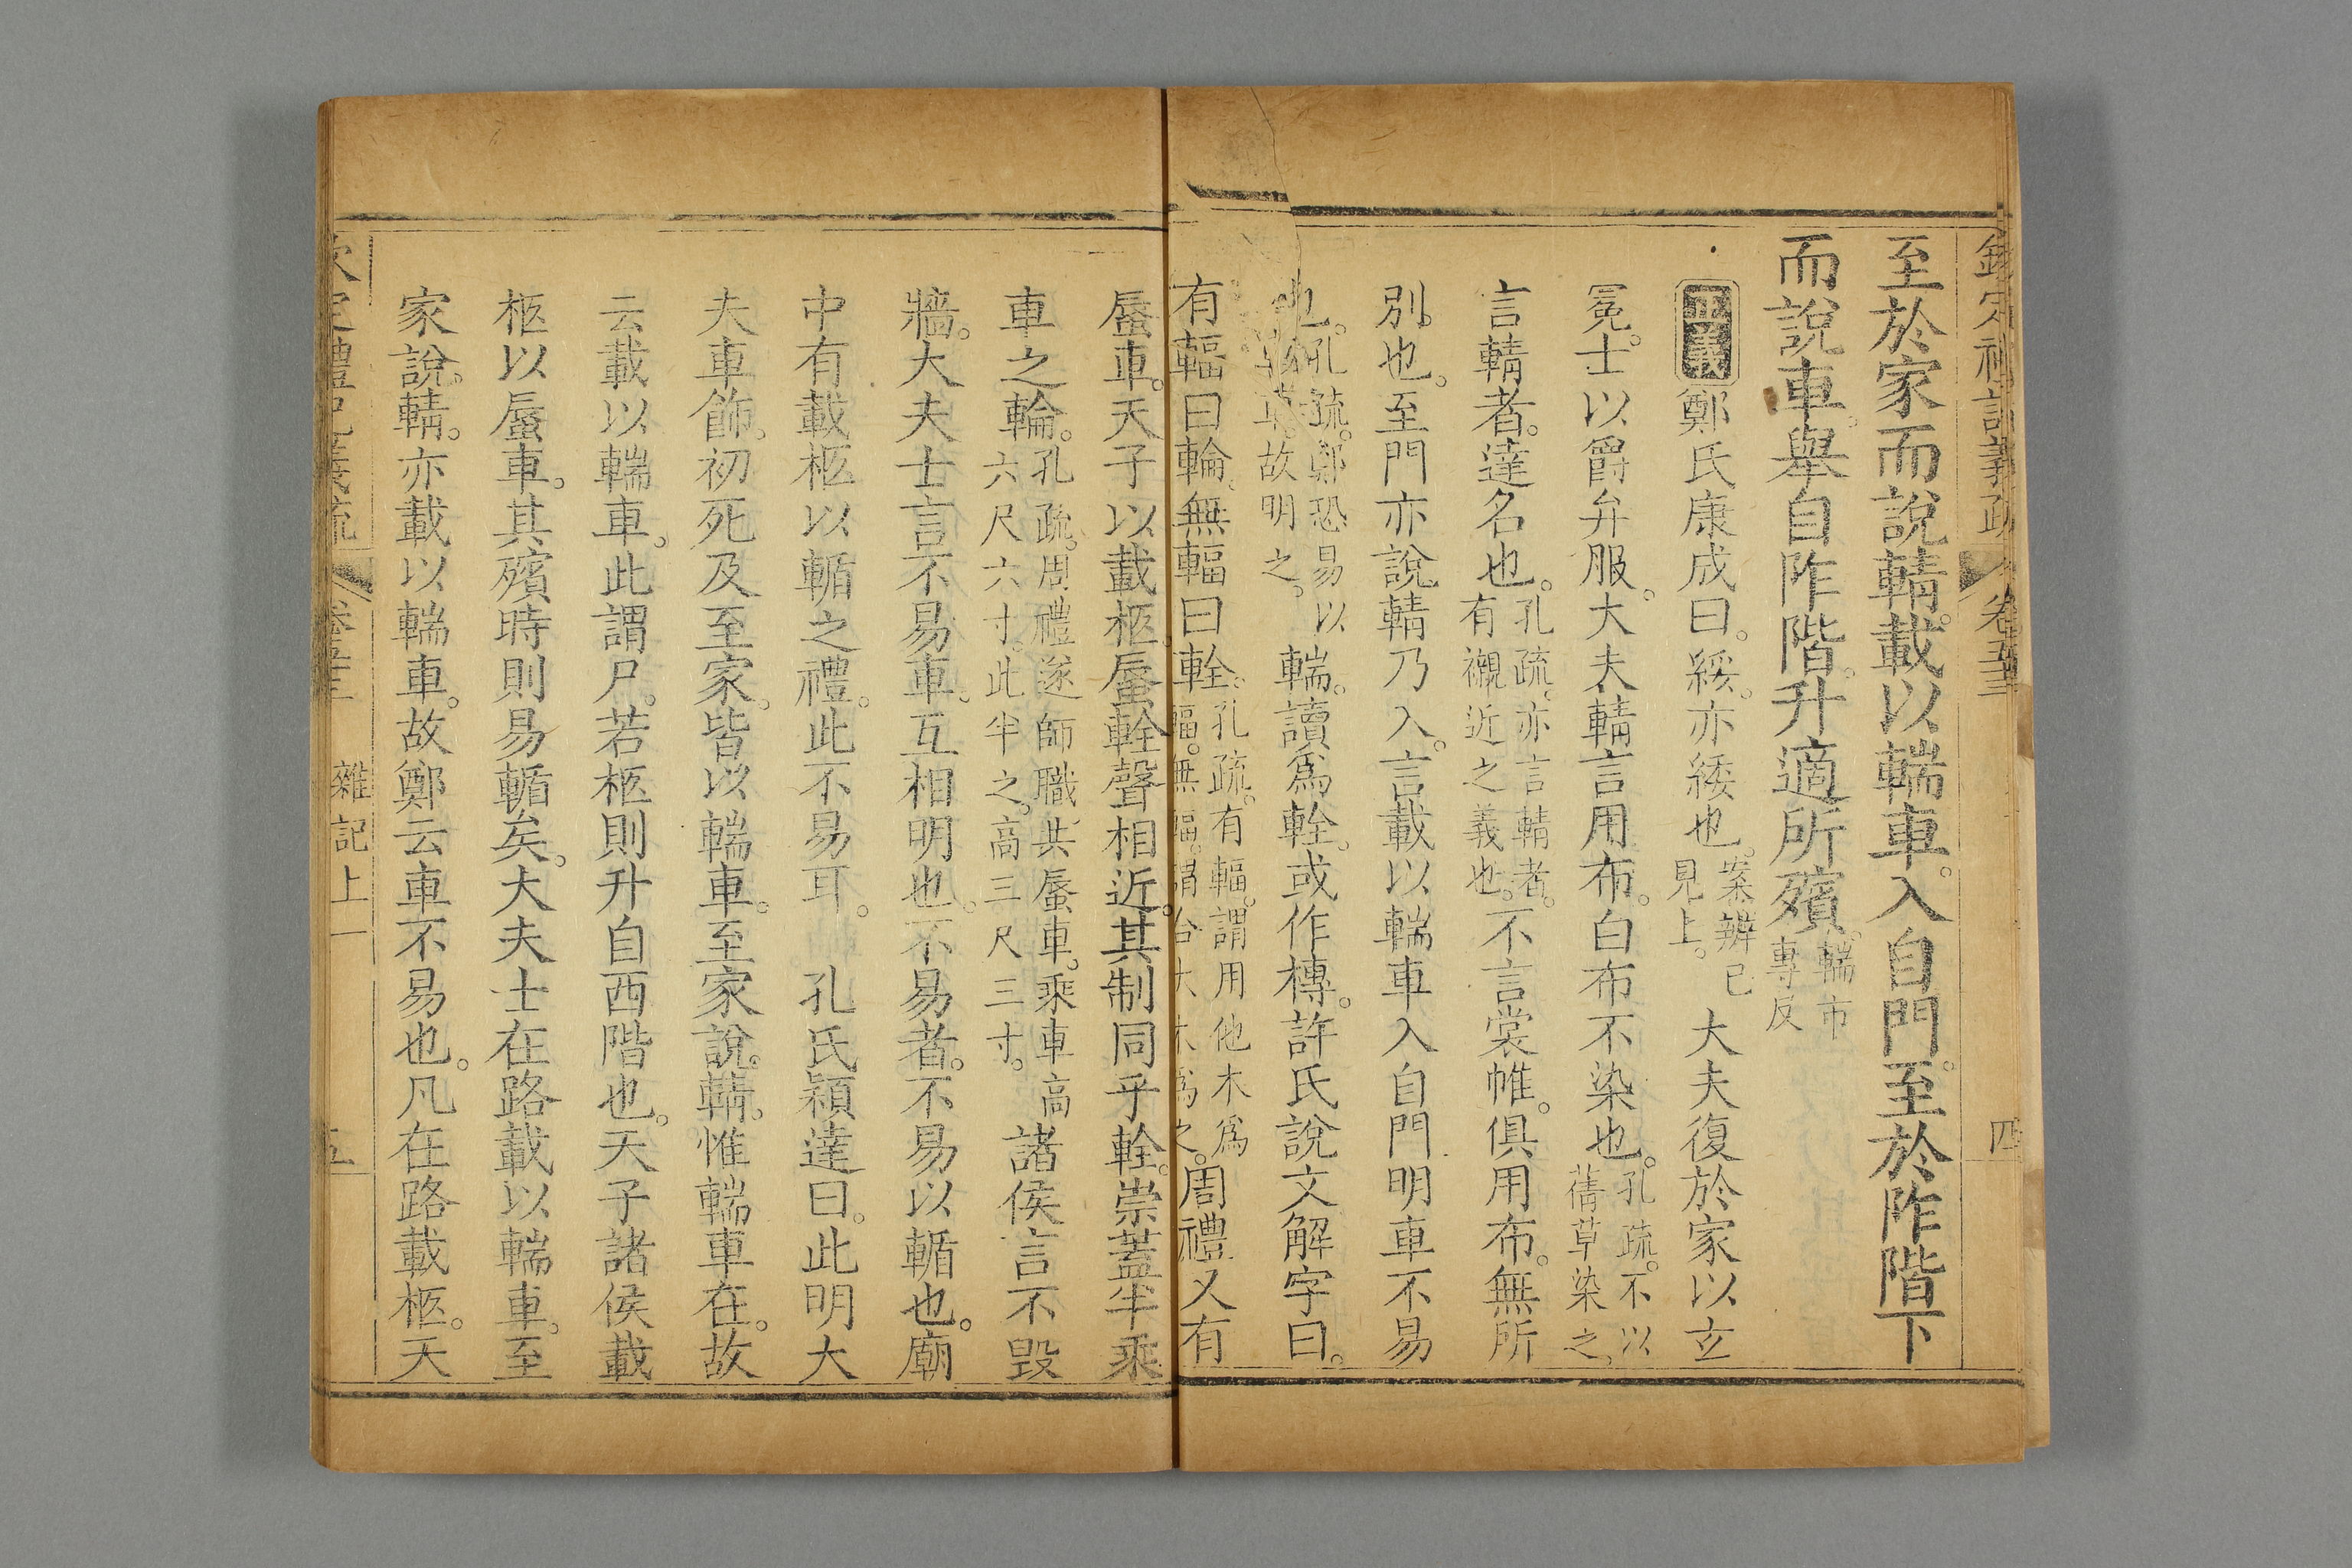 欽定禮記義疏 卷五十三 四
至於家而說輤。載以輲車。入自門。至於阼階下
而說車。舉自阼階。升適所殯。輲市專反
正義 鄭氏康成曰。綏。亦緌也。案辨已見上。 大夫復於家以玄
冕。士以爵弁服。大夫輤言用布。白布不染也。孔疏。不以蒨草染之。
言輤者。達名也。孔疏。亦言輤者。有襯近之義也。不言裳帷。俱用布。無所
別也。至門亦說輤乃入。言載以輲車入自門。明車不易
也。孔疏。鄭恐易以 故明之。 輲。讀爲輇。或作槫。許氏說文解字曰。
有輻曰輪。無輻曰輇。孔疏。有輻。謂用他木爲輻。無輻。謂合大木爲之。周禮又有
蜃車。天子以載柩。蜃輇聲相近。其制同乎輇。崇蓋半乘
車之輪。孔疏。周禮遂師職。共蜃車。乘車高六尺六寸。此半之。高三尺三寸。 諸侯言不毀
牆。大夫士言不易車。互相明也。不易者。不易以輴也。廟
中有載柩以輴之禮。此不易耳。 孔氏穎達曰。此明大
夫車飾。初死及至家。皆以輲車。至家說輤。惟輲車在。故
云載以輲車。此謂尸。若柩則升自西階也。天子諸侯載
柩以蜃車。其殯時則易輴矣。大夫士在路載以輲車。至
家說輤。亦載以輲車。故鄭云車不易也。凡在路載柩。天
欽定禮記義疏 卷五十三 雜記上一 五